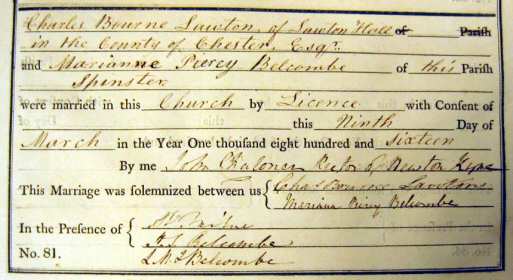 Charles Bourne Lawton, of Lawton Hall of Parish
in the County of Chester, Esqr.
and Marianne Percy Belcombe of this Parish
Spinster
were married in this Church by Licence with Consent of
this Ninth Day of
March in the Year One thousand eight hundred and sixteen
By me John Chaloner Rector of Newton Kyme
This Marriage was solemnized between us { Chas Bourne Lawton
Mariana Percy Belcombe
In the Presence of {
Belcombe
No. 81. Belcombe